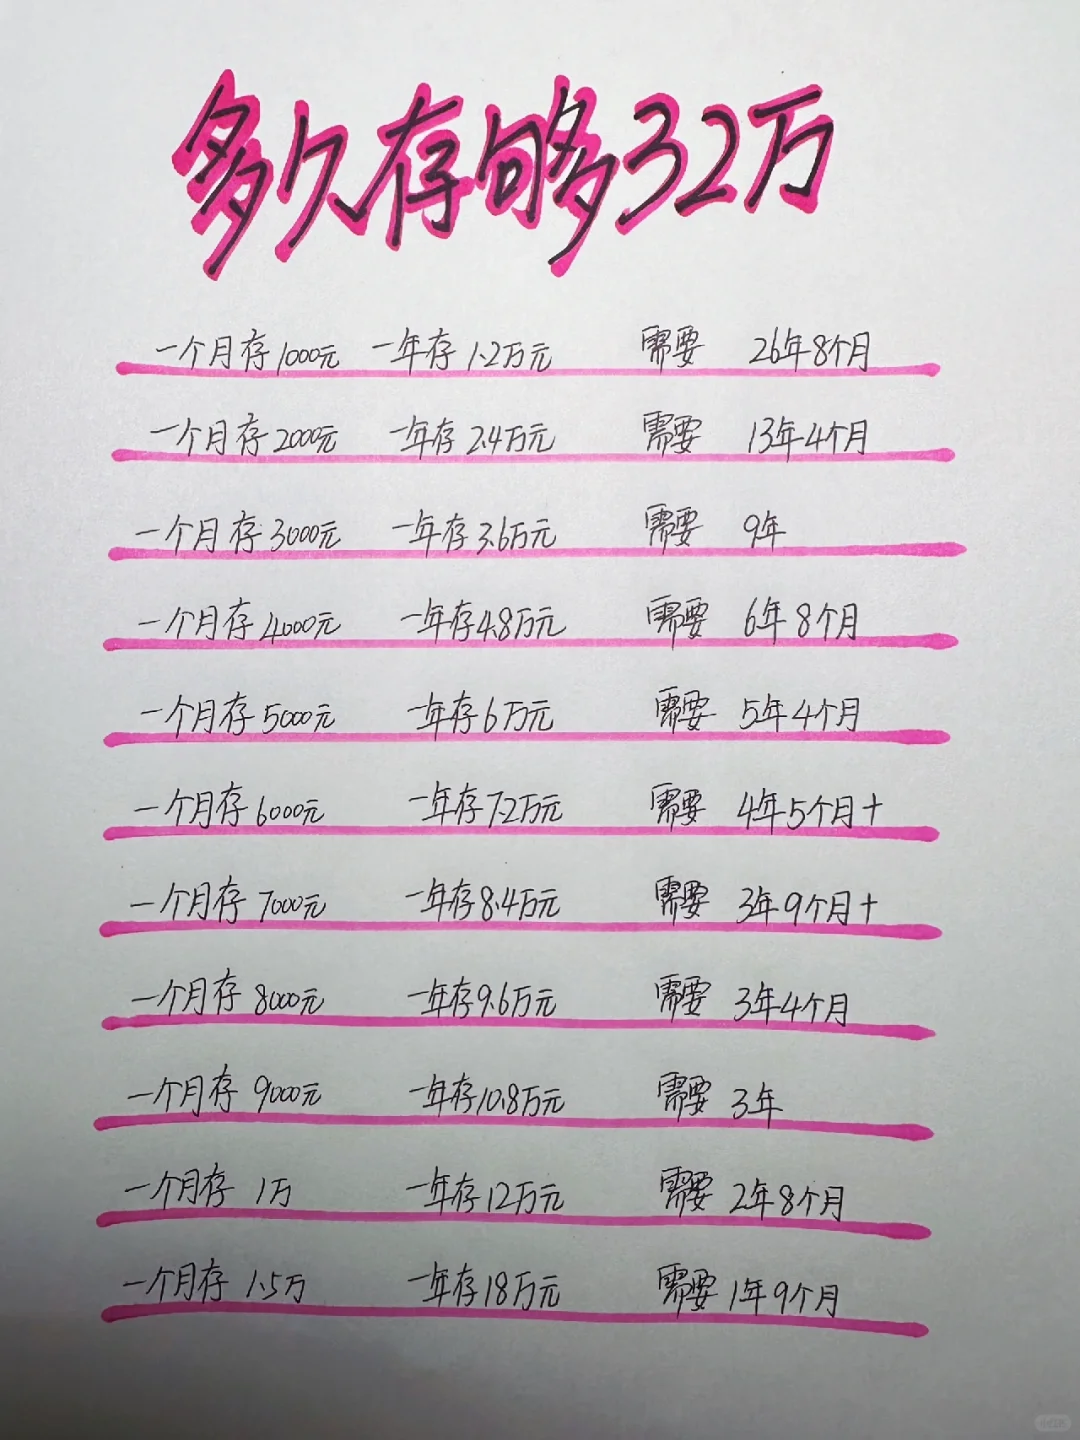 多久存够32万
一个月存1000元 一年存1.2万元 需要 26年8个月
一个月存2000元 一年存2.4万元 需要 13年4个月
一个月存3000元 一年存3.6万元 需要 9年
一个月存4000元 一年存4.8万元 需要 6年8个月
一个月存5000元 一年存6万元 需要 5年4个月
一个月存6000元 一年存7.2万元 需要 4年5个月+
一个月存7000元 一年存8.4万元 需要 3年9个月+
一个月存8000元 一年存9.6万元 需要 3年4个月
一个月存9000元 一年存10.8万元 需要 3年
一个月存 1万 一年存12万元 需要 2年8个月
一个月存 1.5万 一年存18万元 需要 1年9个月